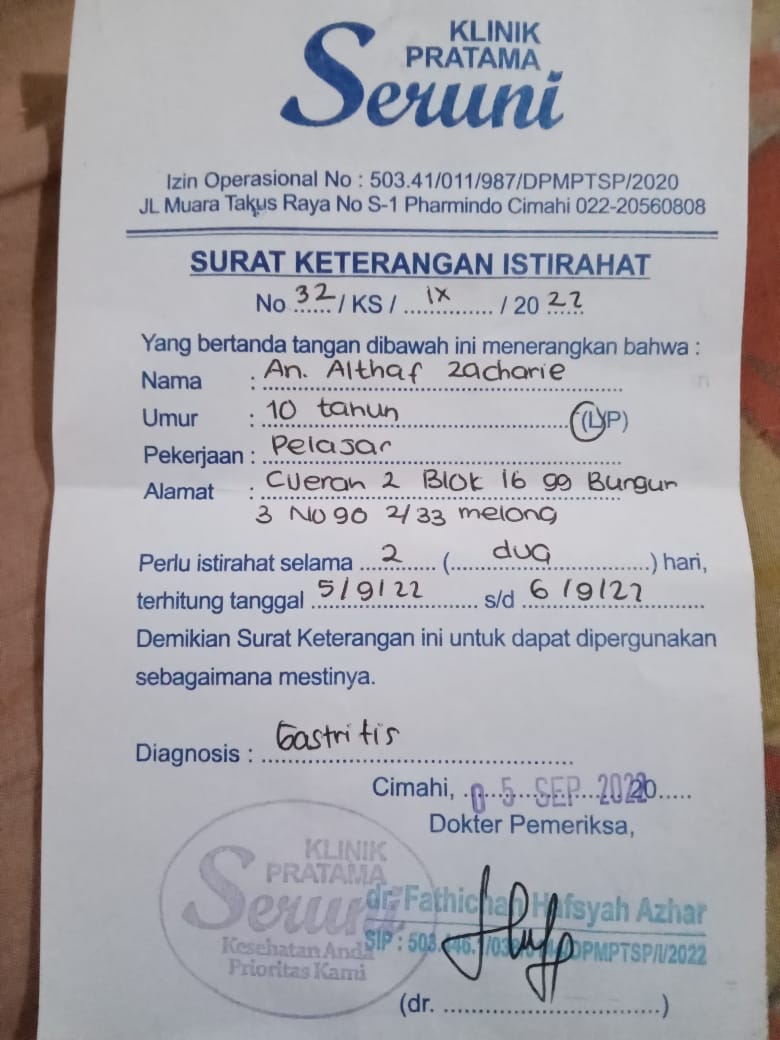 KLINIK
PRATAMA
Seruni
Izin Operasional No : 503.41/011/987/DPMPTSP/2020
JL Muara Takus Raya No S-1 Pharmindo Cimahi 022-20560808
SURAT KETERANGAN ISTIRAHAT
No 32 / KS / ix / 20 22
Yang bertanda tangan dibawah ini menerangkan bahwa :
Nama : An. Althaf Zacharie
Umur : 10 tahun (L/P)
Pekerjaan : Pelajar
Alamat : Cijerah 2 Blok 16 gg Bungur
3 No 90 2/33 melong
Perlu istirahat selama 2 ( dua ) hari,
terhitung tanggal 5/9/22 s/d 6/9/22
Demikian Surat Keterangan ini untuk dapat dipergunakan
sebagaimana mestinya.
Diagnosis : Gastritis
Cimahi, 05 SEP 2022
Dokter Pemeriksa,
KLINIK
PRATAMA
Seruni
Kesehatan Anda
Prioritas Kami
dr. Fathichah Hafsyah Azhar
SIP : 503 /DPMPTSP/I/2022
(dr. )